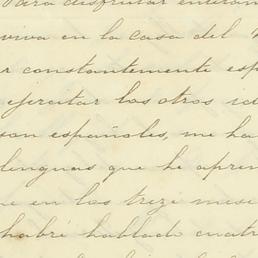 Para disfrutar
viva en la casa del
r constantemente esp
ejercitar los otros id
son españoles, me ha
lenguas que he apren
ue en los trece mese
habré hablado cuatr